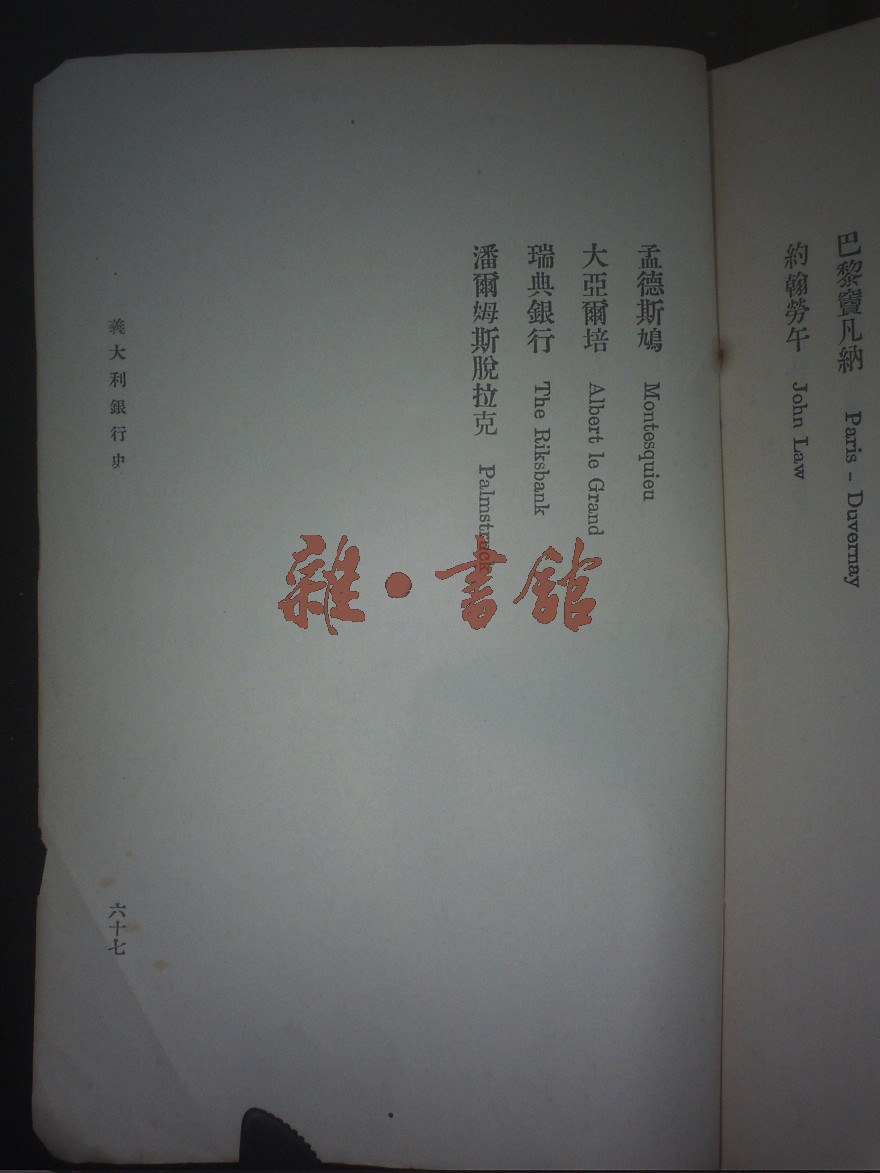 巴黎竇凡納 Paris - Duvernay
約翰勞午 John Law
孟德斯鳩 Montesquieu
大亞爾培 Albert le Grand
瑞典銀行 The Riksbank
潘爾姆斯脫拉克 Palmstruck
義大利銀行史
六十七
雜·書館